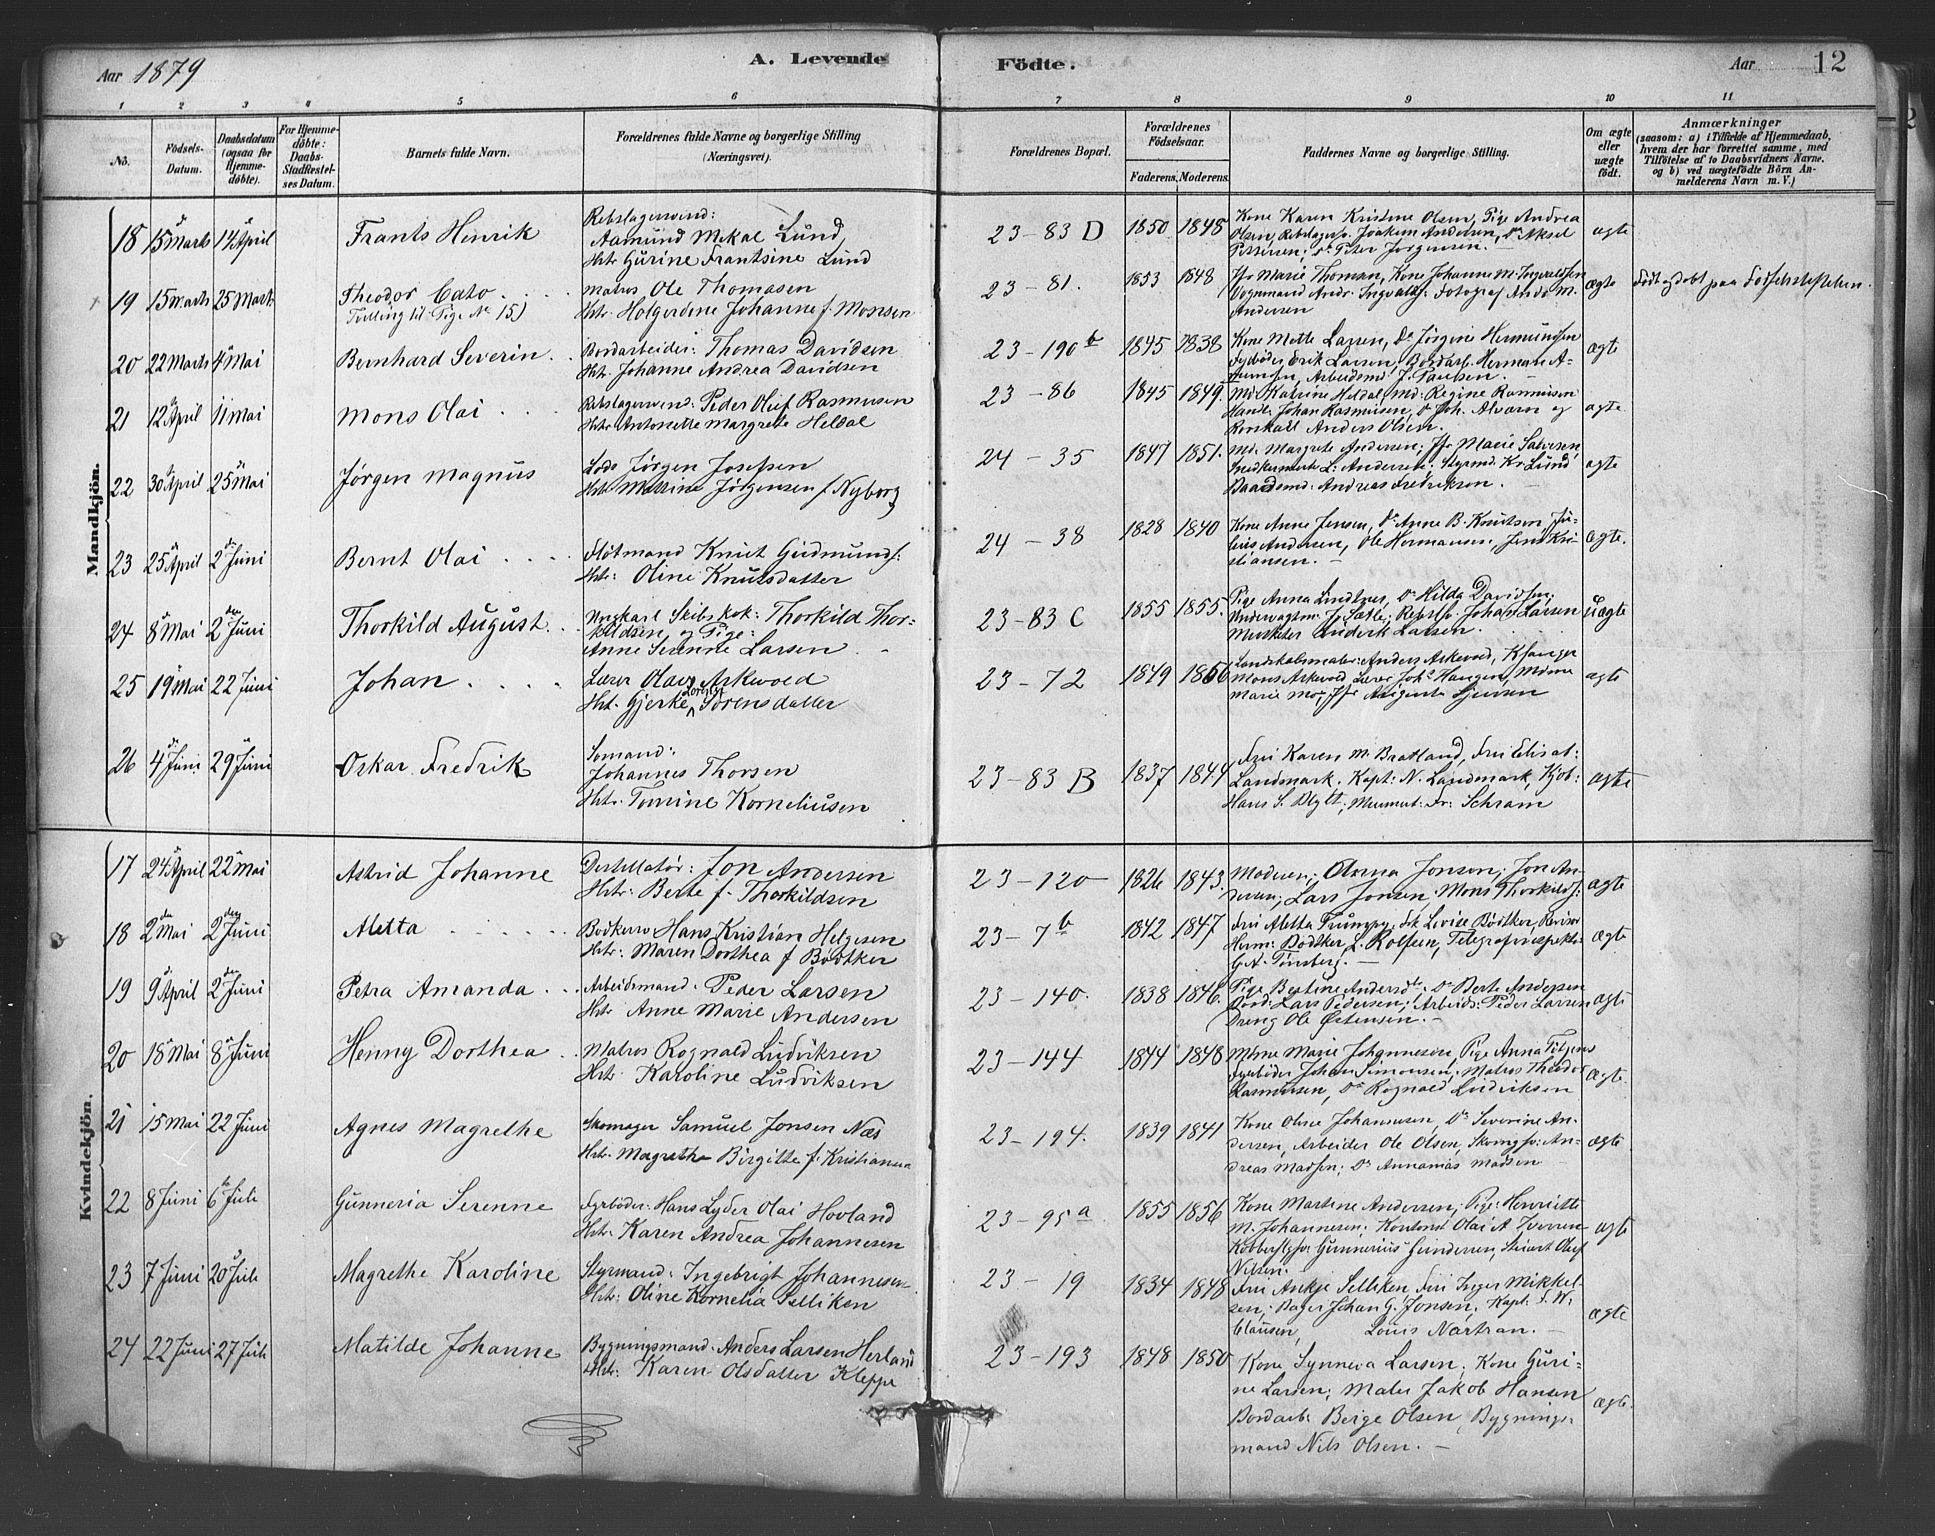 Aar 1879 A. Levende Födte. Aar 12
1 2 3 4 5 6 7 8 9 10 11
No.
Födsels-Datum.
Daabsdatum (ogsaa for Hjemme-döbte).
For Hjemme-döbte: Daabs-Stadfæstel-ses Datum.
Barnets fulde Navn.
Forældrenes fulde Navne og borgerlige Stilling (Næringsvei).
Forældrenes Bopæl.
Forældrenes Födselsaar.
Faderens. Moderens.
Faddernes Navne og borgerlige Stilling.
Om ægte eller uægte födt.
Anmærkninger
(saasom: a) i Tilfælde af Hjemmedaab, hvem der har forrettet samme, med Tilföielse af to Daabsvidners Navne. og b) ved uægtefödte Börn An-melderens Navn m. V.)
Mandkjön.
18 15 Marts 14 April Frants Hinrik
Rebslagersvend:
Aamund Mikal Lund
Hstr Gurine Frantsine Lund
23-83 D 1850 1848
Kone Karen Kristine Olsen, Pige Andrea
Olsen, Rebslagersv. Joakim Andersen, Do Aksel
Pettersen; Do Peter Jørgensen.
ægte
19 15 Marts 25 Marts Theodor Cato
Tvilling til Pige No 15)
Matros Ole Thomasen
Hstr. Holgerdine Johanne f. Monsen
23-81. 1853 1848
Jfr Marie Thoman, Kone Johanne M. Ingvaldsen
Vognmand Andr. Ingvalds: Fotograf Andr M.
Andersen
ægte Født og døbt paa Fødselsstiftelsen.
20 22 Marts 4 Mai Bernhard Severin
Bordarbeider: Thomas Davidsen
Hstr. Johanne Andrea Davidsen
23-190 b 1845 1838
Kone Mette Larsen, Do Jørgine Hermundsen
Fyrbøder Erik Larsen, Bordarb. Herman A-
mundsen, Arbeidsmd J. Paulsen.
ægte
21 12 April 11 Mai Mons Olai
Rebslagersvend: Peder Oluf Rasmusen
Hstr Antonette Margrete Heldal
23-86 1845 1849.
Md: Katrine Heldal, Md: Regine Rasmusen
Handl: Johan Rasmusen, Do Joh. Alvarn og
Anders Olsen.
ægte
22 30 April 25 Mai Jørgen Magnus
Lods Jørgen Josefsen
Hstr. Massine Jørgensen f. Nyborg
24-35 1847 1851.
Md. Margrete Andersen; Jfr Marie Salvesen,
Snedkermester L: Andersen: Styrmd. Kr Lund
Baadsmd: Andreas Fredriksen.
ægte
23 25 April 2 Juni Bernt Olai
Fløtmand Knut Gudmunds:
Hstr: Oline Knutsdatter
24-38 1828 1840
Kone Anne Jensen, Do Anne B. Knutsen, Ju-
lius Andersen, Ole Hermansen, Jens Kri-
stiansen.
ægte.
24 8 Mai 2 Juni Thorkild August
Ungkarl Skibskok: Thorkild Thor-
kildsen, og Pige:
Anne Serinne Larsen
23-83 C 1855 1855.
Pige Anna Lindtner, Do Hilda Davidsen;
J. Sætle, Rebslsv. Johan Larsen
Musketer Larsen.
Uægte
25 19 Mai 22 Juni Johan
Lærer Olav Askevold
Hstr. Gjerke Sørensdatter
23-72 1849 1856
Landskabsmaler: Anders Askevold, Kjøbmd
Mons Askevold Lærer Johs Haugen, Mdme
Marie Moe, Jfr Augusta Jensen
ægte
26 4 Juni 29 Juni Oskar Fredrik
Sømand:
Johannes Thorsen
Hstr. Tomine Korneliusen
23-83 B 1837 1844
Fru Karen M. Bratland, Fru Elisab:
Landmark. Kapt: N. Landmark, Kjøb:
Hans S. Blytt, Fr: Schram
ægte
Kvindekjön.
17 24 April 22 Mai Astrid Johanne
Destillatør: Jon Andersen
Hstr: Berte f. Thorkildsen
23-120 1826 1843.
Moderen; Anna Jonson; Jon An-
dersen, Lars Jonsen, Mons Thorkilds:
ægte
18 2 Mai 2 Juni Aletta
Bødkersv Hans Kristian Helgesen
Hstr: Maren Dorthea f Bødtker
23-7 b 1842 1847
Fru Aletta Trumpy, Frk Lovise Bødtker, Revisor
Herm: Bødtker, L. Rolfsen, Telegrafinspektør
G. A. Tønsberg.
ægte
19 9 April 2 Juni Petra Amanda
Arbeidsmand: Peder Larsen
Hstr Anne Marie Andersen
23-140. 1838 1846.
Pige Bertine Andersdtr. Do Berte Andersen
Bord: Lars Pedersen; Arbeids: Peder Larsen
Dreng Ole Østensen.
ægte
20 18 Mai 8 Juni Henny Dorthea
Matros Rognald Ludviksen
Hstr. Karoline Ludviksen
23-144 1844 1848
Mdme Marie Johannesen, Pige Anna
Fyrbøder Johan Simonsen, Matros Theodor
Rasmusen, Do Rognald Ludviksen
ægte.
21 15 Mai 22 Juni Agnes Magrethe
Skomager Samuel Jonsen Næs
Hstr. Magrethe Birgitte f. Kristiansen
23-194. 1839 1841
Kone Oline Johannesen, Do Severine An-
dersen, Arbeider Ole Olsen, Skomgsv: An-
dreas Madsen; Do Annanias Madsen
ægte
22 8 Juni 6 Juli Gunneria Serenne
Fyrbøder: Hans Lyder Olai Hovland
Hstr. Karen Andrea Johannesen
23-95 a 1855 1856
Kone Martine Andersen; Pige: Henriette
M. Johannesen; Kontorist Olai A. Iversen
Kobberslgsv: Gunnerius Gundersen, Stuert Oluf
Nilsen.
ægte
23 7 Juni 20 Juli Magrethe Karoline
Styrmand: Ingebrigt Johannesen
Hstr: Oline Kornelia Selliken
23-19 1834 1848
Fru Ankje Selliken, Fru Inger Mikkel-
sen; Bager Johan G. Jonsen, Kapt: F. W.
Clausen, Louis Nartran.
ægte
24 22 Juni 27 Juli Matilde Johanne
Bygningsmand. Anders Larsen Herland
Hstr: Karen Olsdatter Kleppe
23-193 1848 1850
Kone Synneva Larsen; Kone Guri-
ne Larsen; Maler Jakob Hansen
Bordarb: Berge Olsen, Bygnings-
mand Nils Olsen.
ægte.